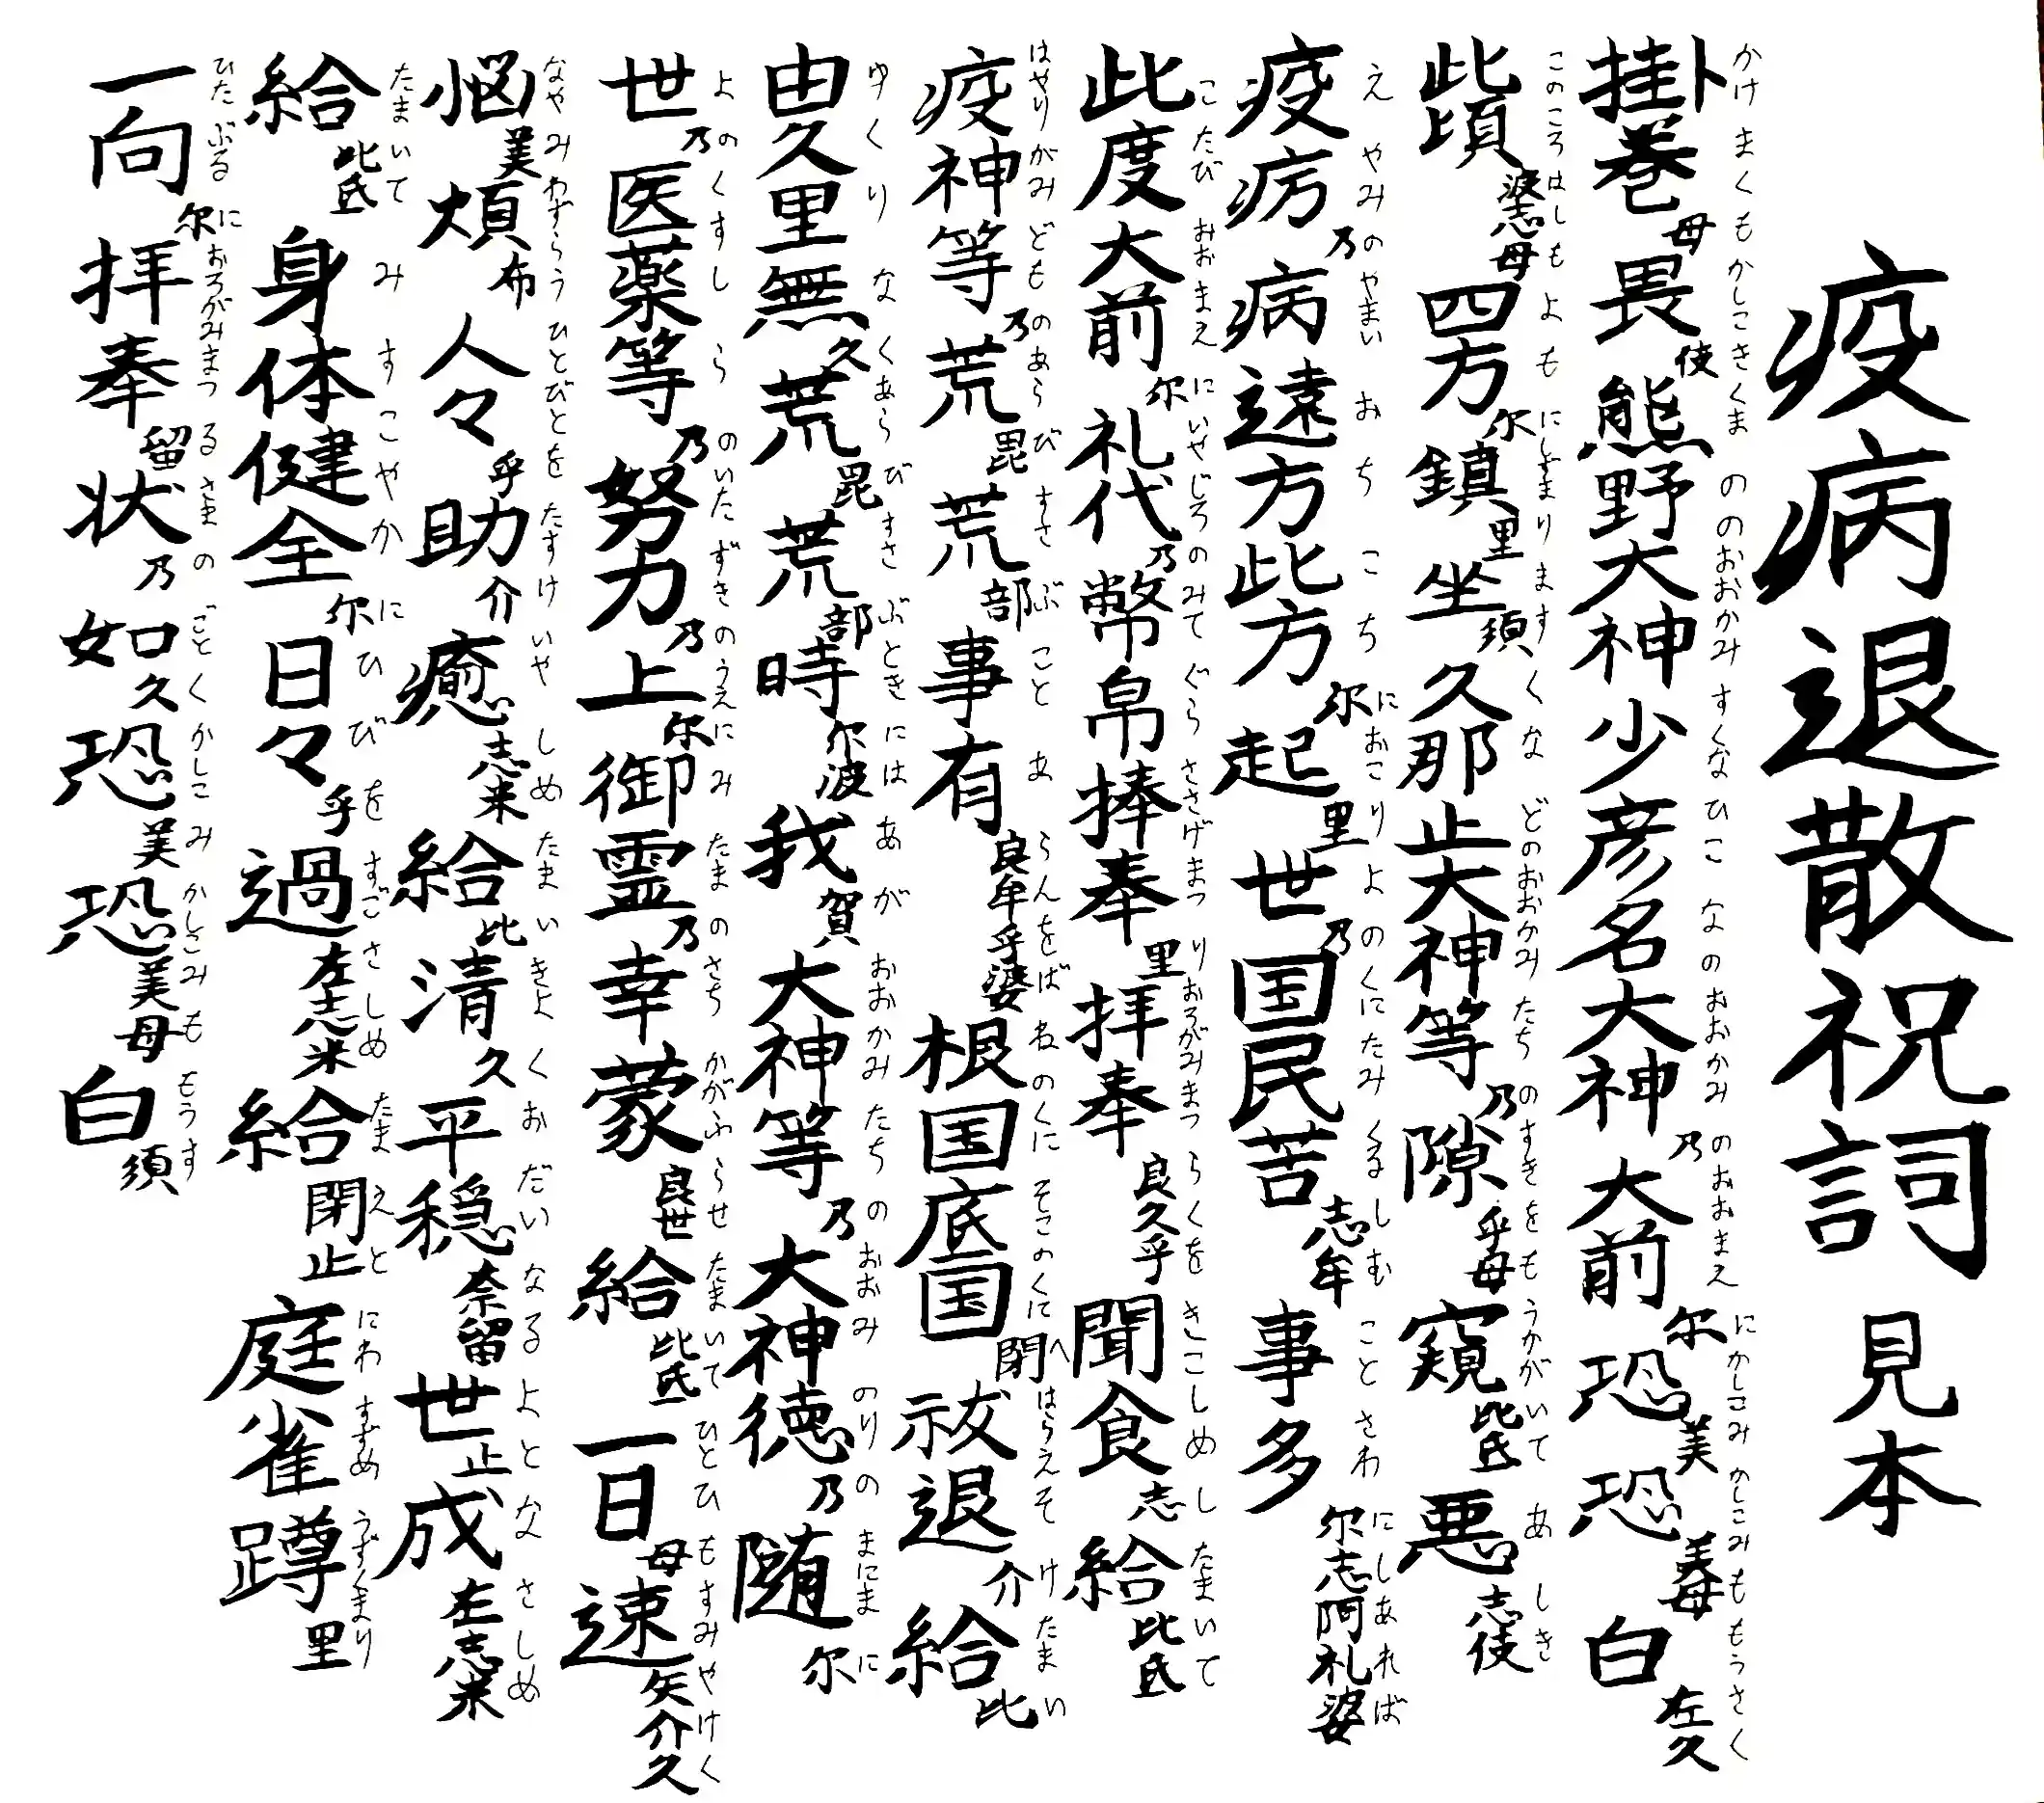 疫病退散祝詞 見本
掛巻母畏伎熊野大神少彦名大神乃大前尔恐美恐美母白左久
かけまくもかしこきくまののおおかみすくなひこなのおおかみのおおまえにかしこみかしこみももうさく
此頃婆志母四方尔鎮里坐須久那止大神等乃隙乎母窺比氐悪志伎
このころはしもよもにしずまりますくなどのおおかみたちのすきをもうかがいてあしき
疫病乃病遠方此方尔起里世乃国民苦志牟事多尔志阿礼婆
えやみのやまいおちこちにおこりよのくにたみくるしむことさわにしあれば
此度大前尔礼代乃幣帛捧奉里拝奉良久乎聞食志給比氐
こたびおおまえにいやじろのみてぐらささげまつりおろがみまつらくをきこしめしたまいて
疫神等乃荒毘荒部事有良牟乎婆根国底国閉祓退介給比
はやりがみどものあらびすさぶことあらんをばねのくにそこのくにへはらえそけたまい
由久里無久荒毘荒部時尔波我賀大神等乃大神徳乃随尔
ゆくりなくあらびすさぶときにはあがおおかみたちのおおみのりのまにまに
世乃医薬等乃努力乃上尔御霊乃幸蒙良世給比氐一日母速矢介久
よのくすしらのいたずきのうえにみたまのさちかがふらせたまいてひとひもすみやけく
悩美煩布人々乎助介癒志米給比清久平穏奈留世止成左志米
なやみわずらうひとびとをたすけいやしめたまいきよくおだいなるよとなさしめ
給比氐身体健全尔日々乎過左志米給閉止庭雀蹲里
たまいてみすこやかにひびをすごさしめたまえとにわすずめうずくまり
一向尔拝奉留状乃如久恐美恐美母白須
ひたぶるにおろがみまつるさまのごとくかしこみかしこみももうす